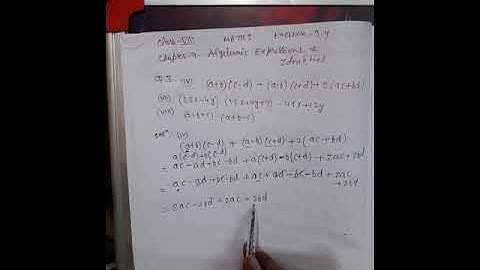 Class-VIII MATHS Exercise-9.4
Chapter-9. Algebraic Expressions &
Identities
Q.3. (iv) (a+b)(c-d) + (a-b)(c+d) + 2(ac+bd)
(vii) (1.5x-4y)(1.5x+4y+3) - 4.5x+12y
(viii) (a+b+c) (a+b-c)
Solⁿ:- (iv)
(a+b)(c-d) + (a-b)(c+d) + 2(ac+bd)
a(c-d)+b(c-d)
= ac-ad+bc-bd + a(c+d)-b(c+d) + 2ac+2bd
= ac-ad+bc-bd + ac+ad-bc-bd + 2ac
+2bd
= 2ac-2bd+2ac+2bd